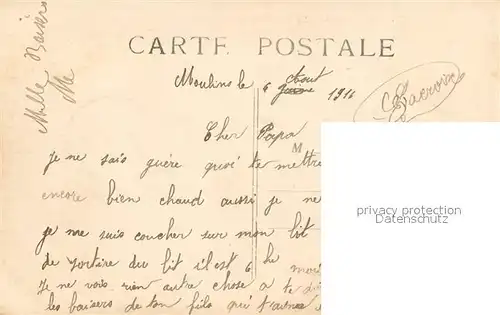 Mille Baisers
CARTE POSTALE
Moulins le 6 Août 1916
Lacroix
Cher Papa
M
je ne sais guère quoi te mettre
encore bien chaud aussi je ne
je me suis coucher sur mon lit
de sortire du lit il est 6 h
Je ne vois rien autre chose a te
les baisers de ton fils qui
privacy protection
Datenschutz